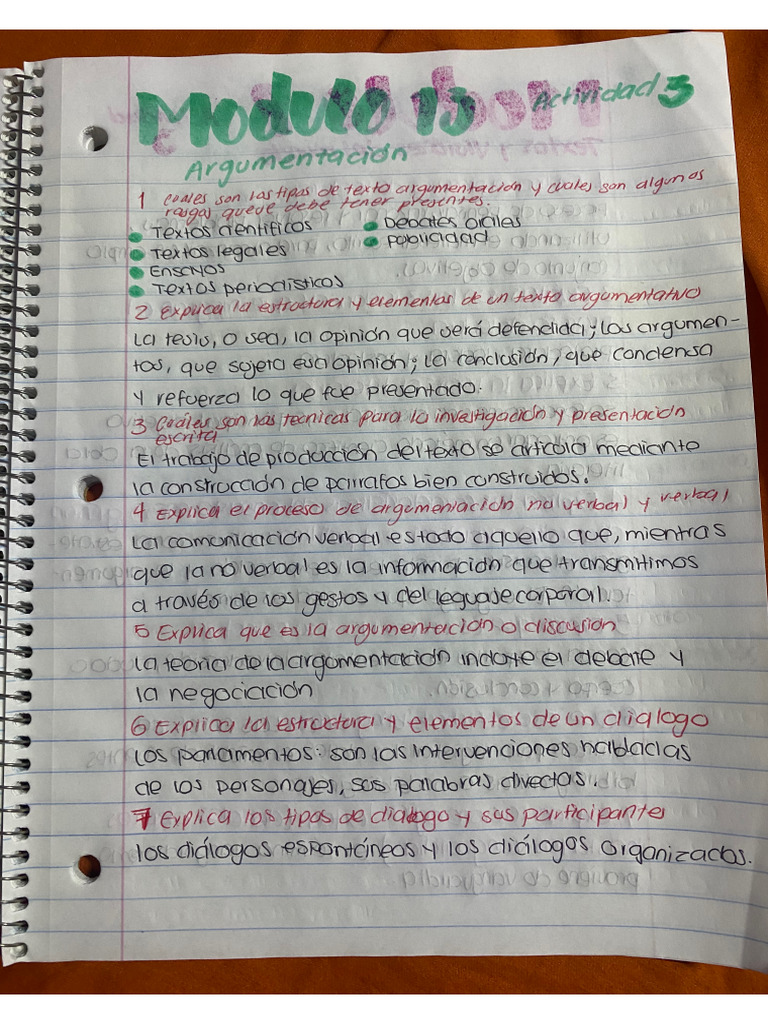 Modulo 15 Actividad 3
Argumentación
1 cuales son los tipos de texto argumentación y cuales son algunos
rasgos que debe tener presentes.
Textos cientificos
Debates orales
Textos legales
Publicidad
Ensayos
Textos periodísticos
2 Explica la estructura y elementos de un texto argumentativo
La tesis, o sea, la opinión que será defendida; los argumen-
tos, que sujeta esa opinión; la conclusión, que condensa
y refuerza lo que fue presentado.
3 Cuáles son las tecnicas para la investigación y presentación
escrita
El trabajo de producción del texto se articula mediante
la construcción de parrafos bien construidos.
4 Explica el proceso de argumentación no verbal y verbal
La comunicación verbal es todo aquello que, mientras
que la no verbal es la información que transmitimos
a través de los gestos y del leguaje corporal.
5 Explica que es la argumentación o discusión
La teoria de la argumentación incluye el debate y
la negociación
6 Explica la estructura y elementos de un dialogo
Los parlamentos: son las intervenciones habladas
de los personajes, sus palabras directas.
7 Explica los tipos de dialogo y sus participantes
los diálogos espontáneos y los diálogos organizados.